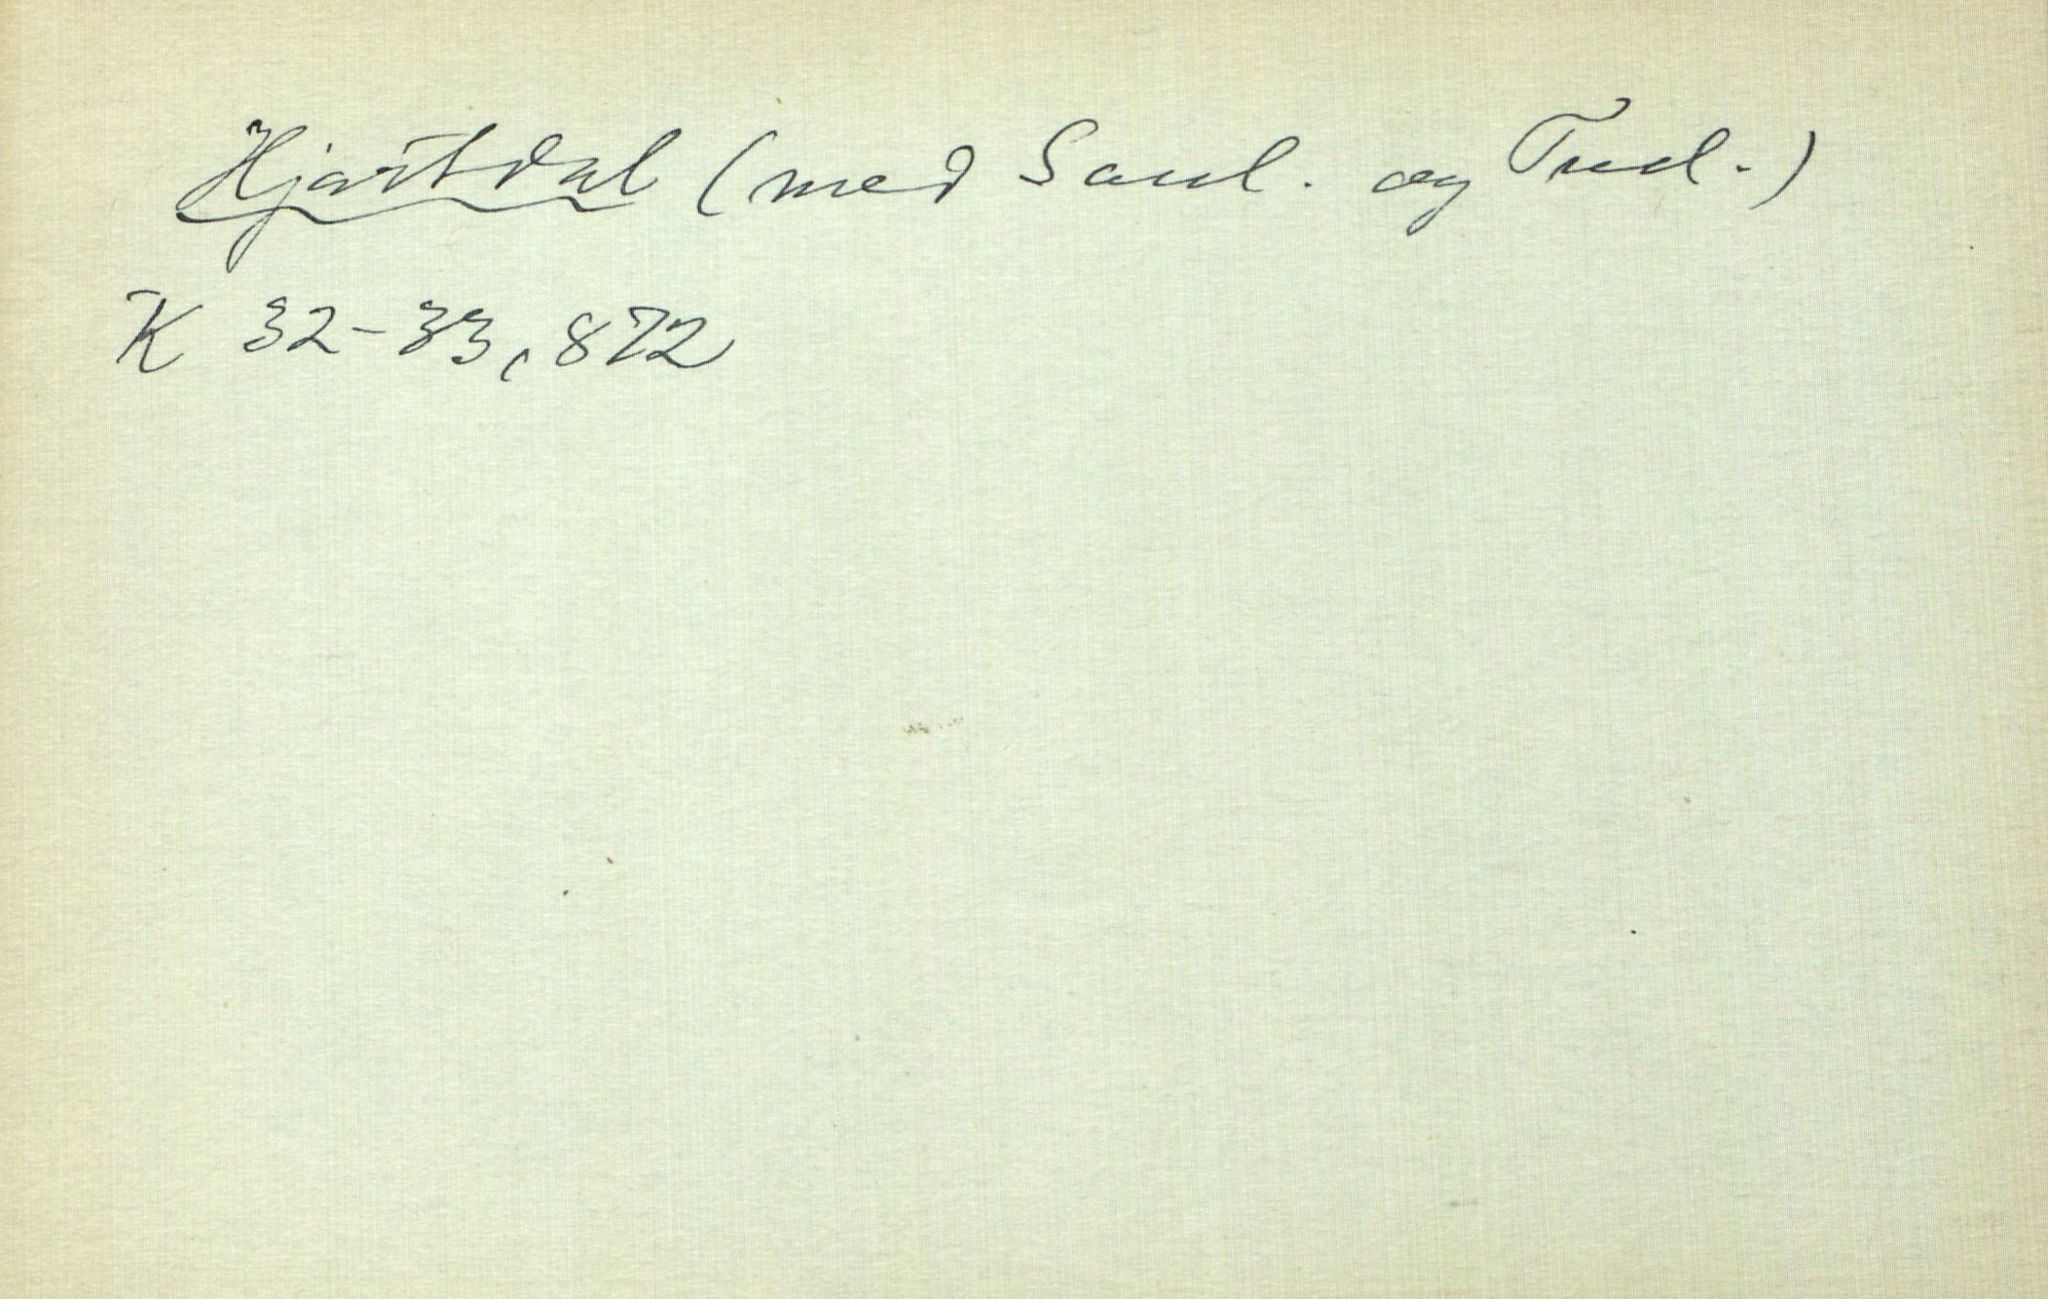 Hjartdal (med Saul. og Tud.)
K 32-33, 872